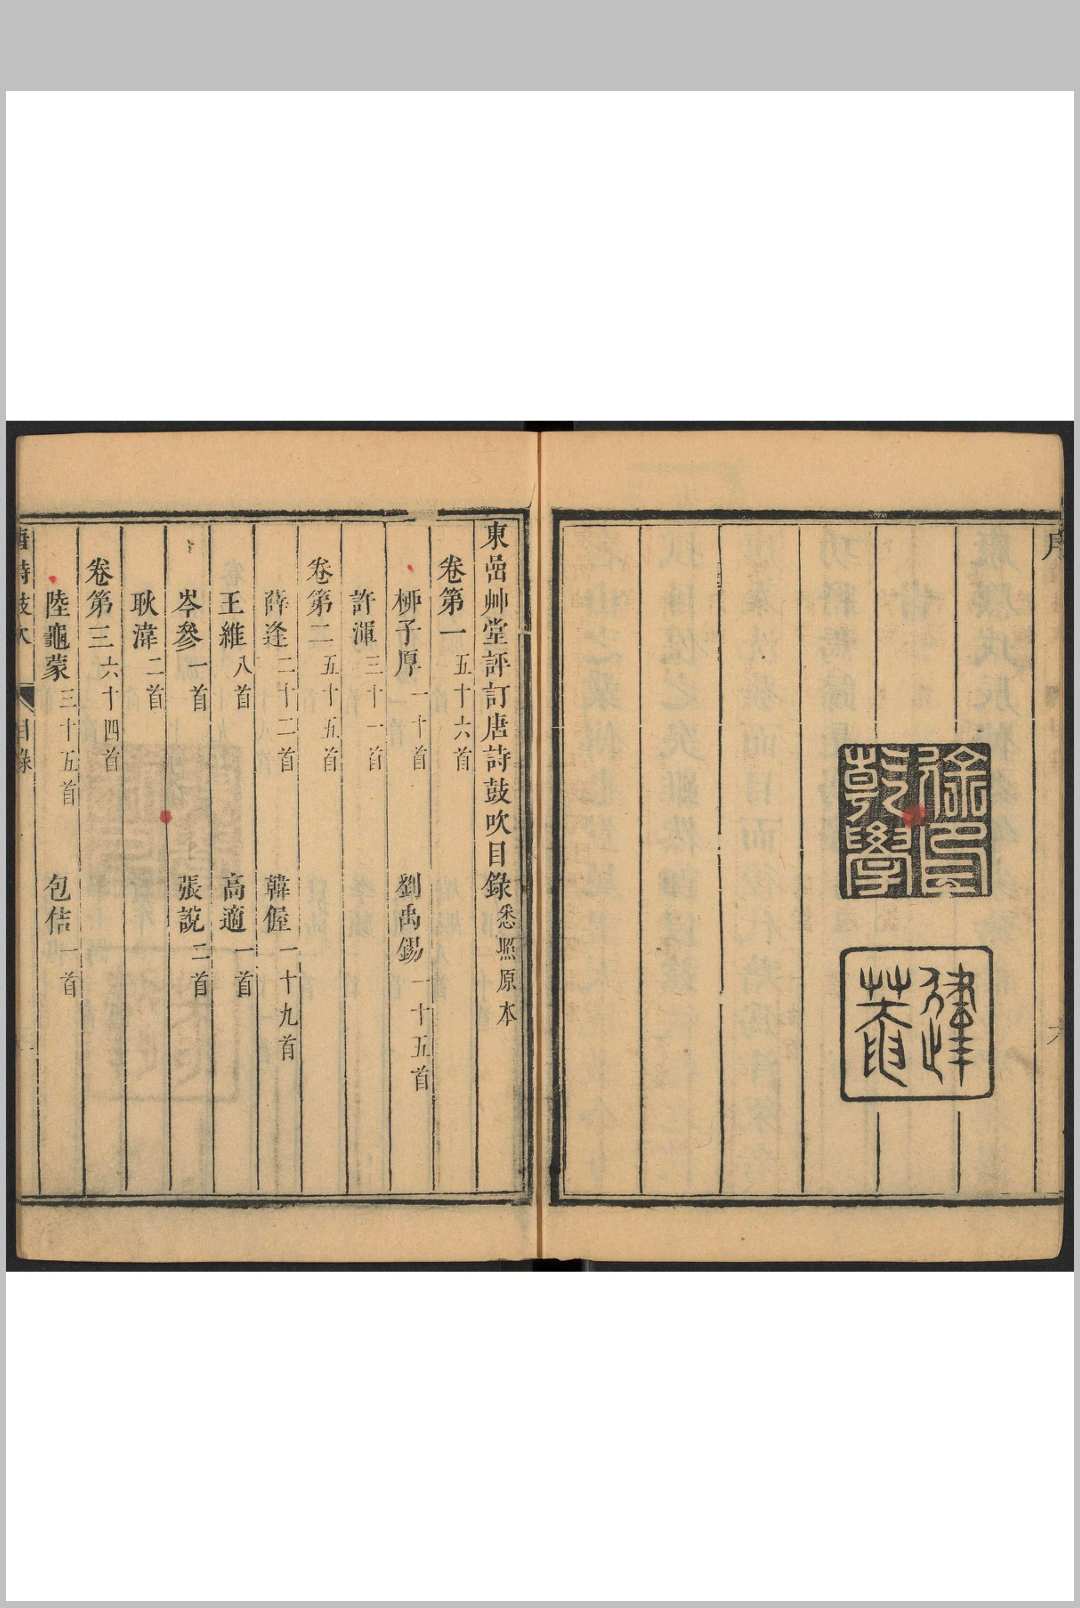 序
六
徐乾學印
健菴
東嵒艸堂評訂唐詩鼓吹目錄悉照原本
卷第一五十六首
柳子厚一十首 劉禹錫一十五首
許渾三十一首
卷第二五十五首
薛逢二十二首 韓偓一十九首
王維八首 高適一首
岑參一首 張說二首
耿湋二首
卷第三六十四首
陸龜蒙三十五首 包佶一首
唐詩鼓吹 目錄 一